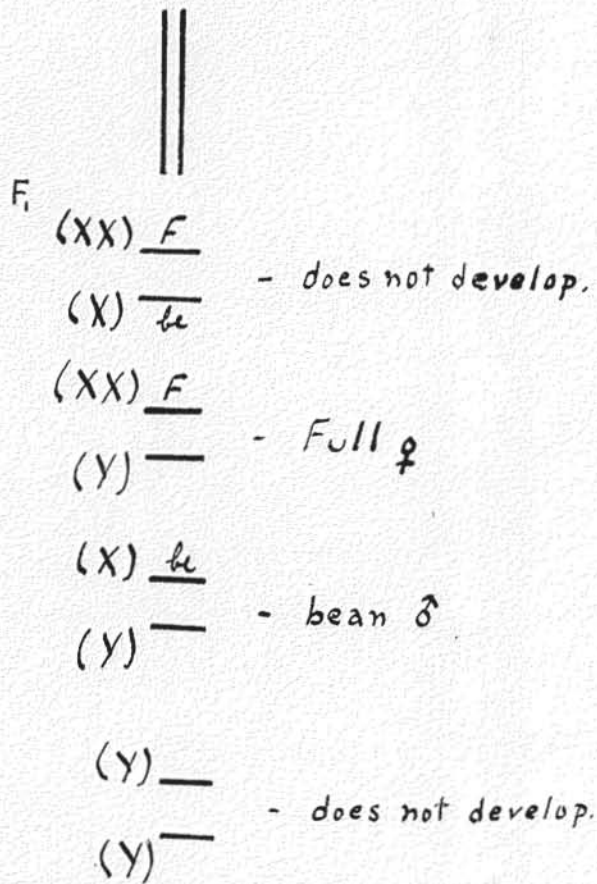 F₁
(XX) F
- does not develop.
(X) be
(XX) F
- Full ♀
(Y)
(X) be
- bean ♂
(Y)
(Y)
- does not develop.
(Y)